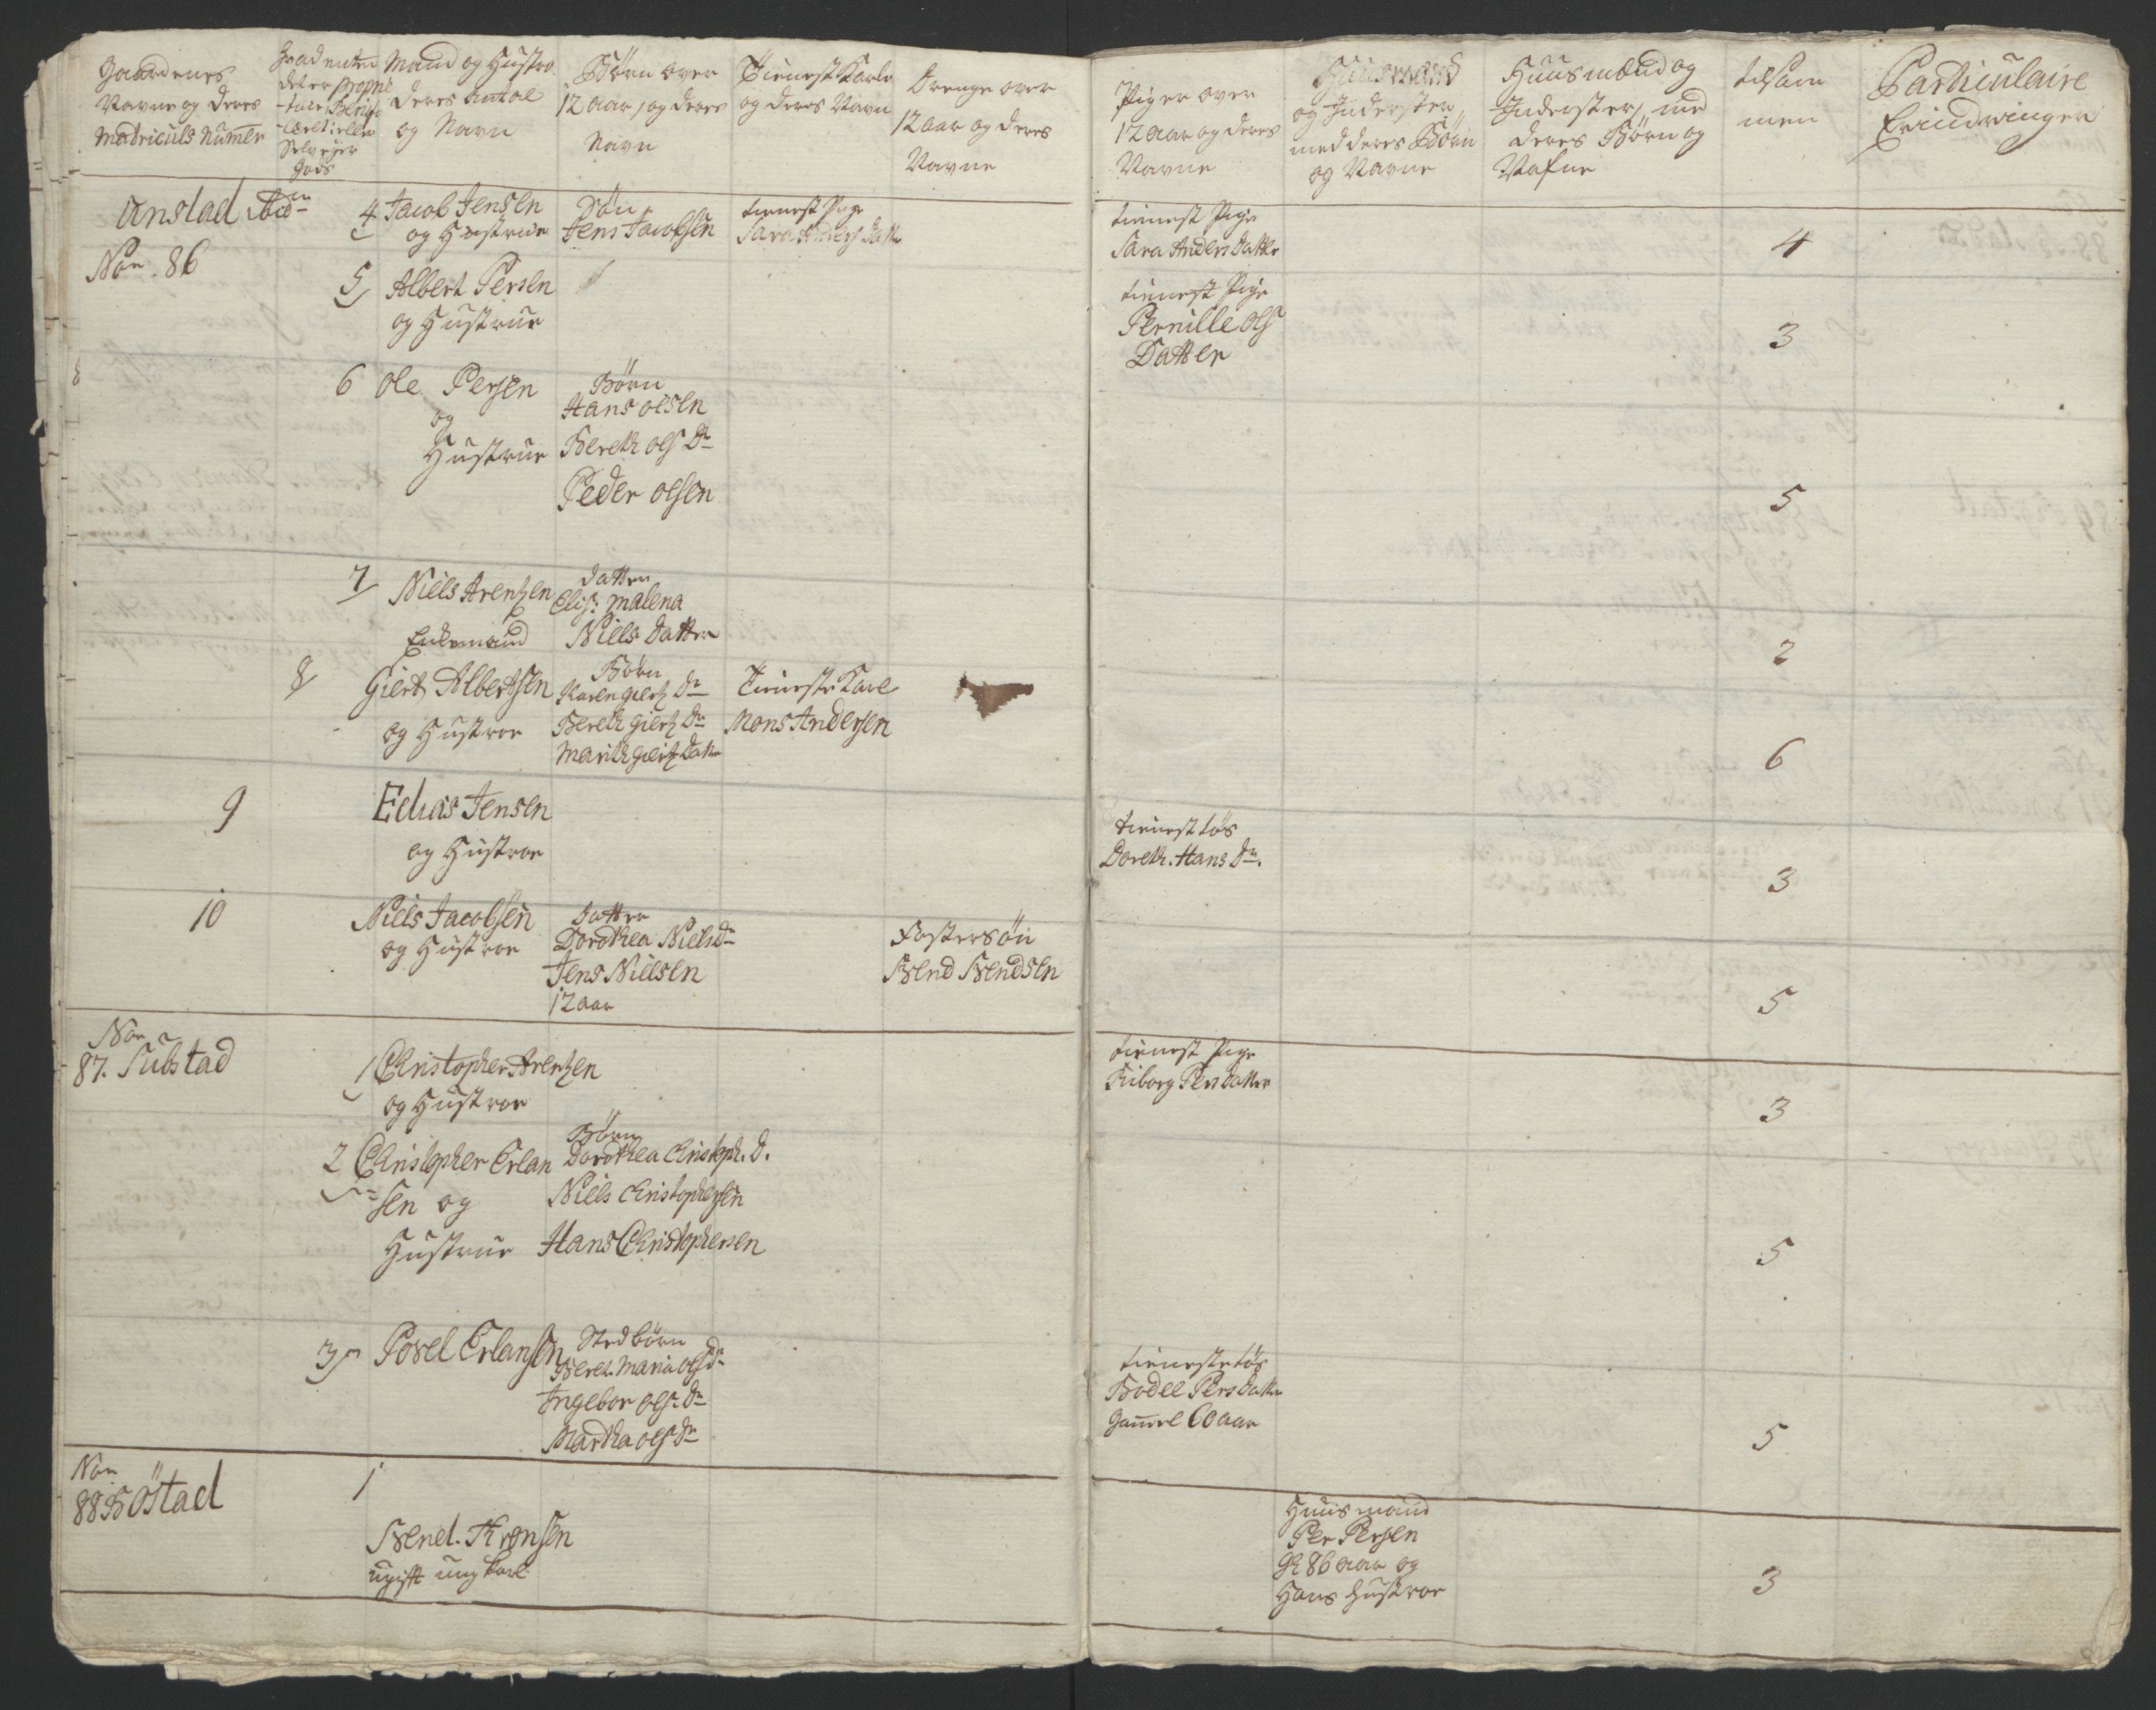 Gaardenes
Navne og deres
Matriculs Numer
Hvad enten
det er Propri
-taire Benifi
-cert eller
Selvejer
Gods
Mand og Hustro
deres antal
og Navn
Börn over
12 aar, og deres
Navn
Tienest Karle
og deres Navn
Drenge over
12 aar og deres
Navne
Piger over
12 aar og deres
Navne
Huusmænd
og Inderster
med deres Börn
og Navne
Huusmænd og
Inderster, med
deres Börn og
Nafne
tilsam
men
Particulaire
Erindringer
Unstad
Non. 86
4 Jacob Jensen
og Hustrue
Sön
Jens Jacobsen
tienest Pige
Sara Anders datter
tienest Pige
Sara Anders datter
4
5 Albert Persen
og Hustrue
tienest Pige
Pernille Ols
Datter
3
6 Ole Persen
og
Hustrue
Börn
Hans olsen
Bereth ols Dr
Peder olsen
5
7 Niels Arentzen
Enkemand
datter
Elis: Malena
Niels datter
2
8 Giert Albertsen
og Hustroe
Börn
Karen giertz Dr
Bereth giertz Dr
Marith giertz datter
Tieneste Karl
Mons Andersen
6
9
Elias Jensen
og Hustroe
tienest tös
Doreth. Hans Dr.
3
10
Niels Jacobsen
og Hustroe
datter
Dorothea Niels dr
Jens Nielsen
12 aar
Fostersön
Svend Svendsen
5
Non
87. Sübstad
1 Christopher Arentzen
og Hustroe
tienest Pige
Kiborg Pers datter
3
2 Christopher Erlan
sen og
Hustrue
Börn
Dorothea Christoph. d.
Niels Christophersen
Hans Christophersen
5
3 Povel Erlansen
Stedbörn
Bereth Maria ols dr
Ingebor ols: dr
Martha ols dr
tieneste tös
Bodel Pers datter
Gammel 60 aar
5
Non
88 Böstad
1
Svend. Thronsen
ugift ung karl
Huusmand
Per Persen
Gl 86 aar og
Hans Hustroe
3